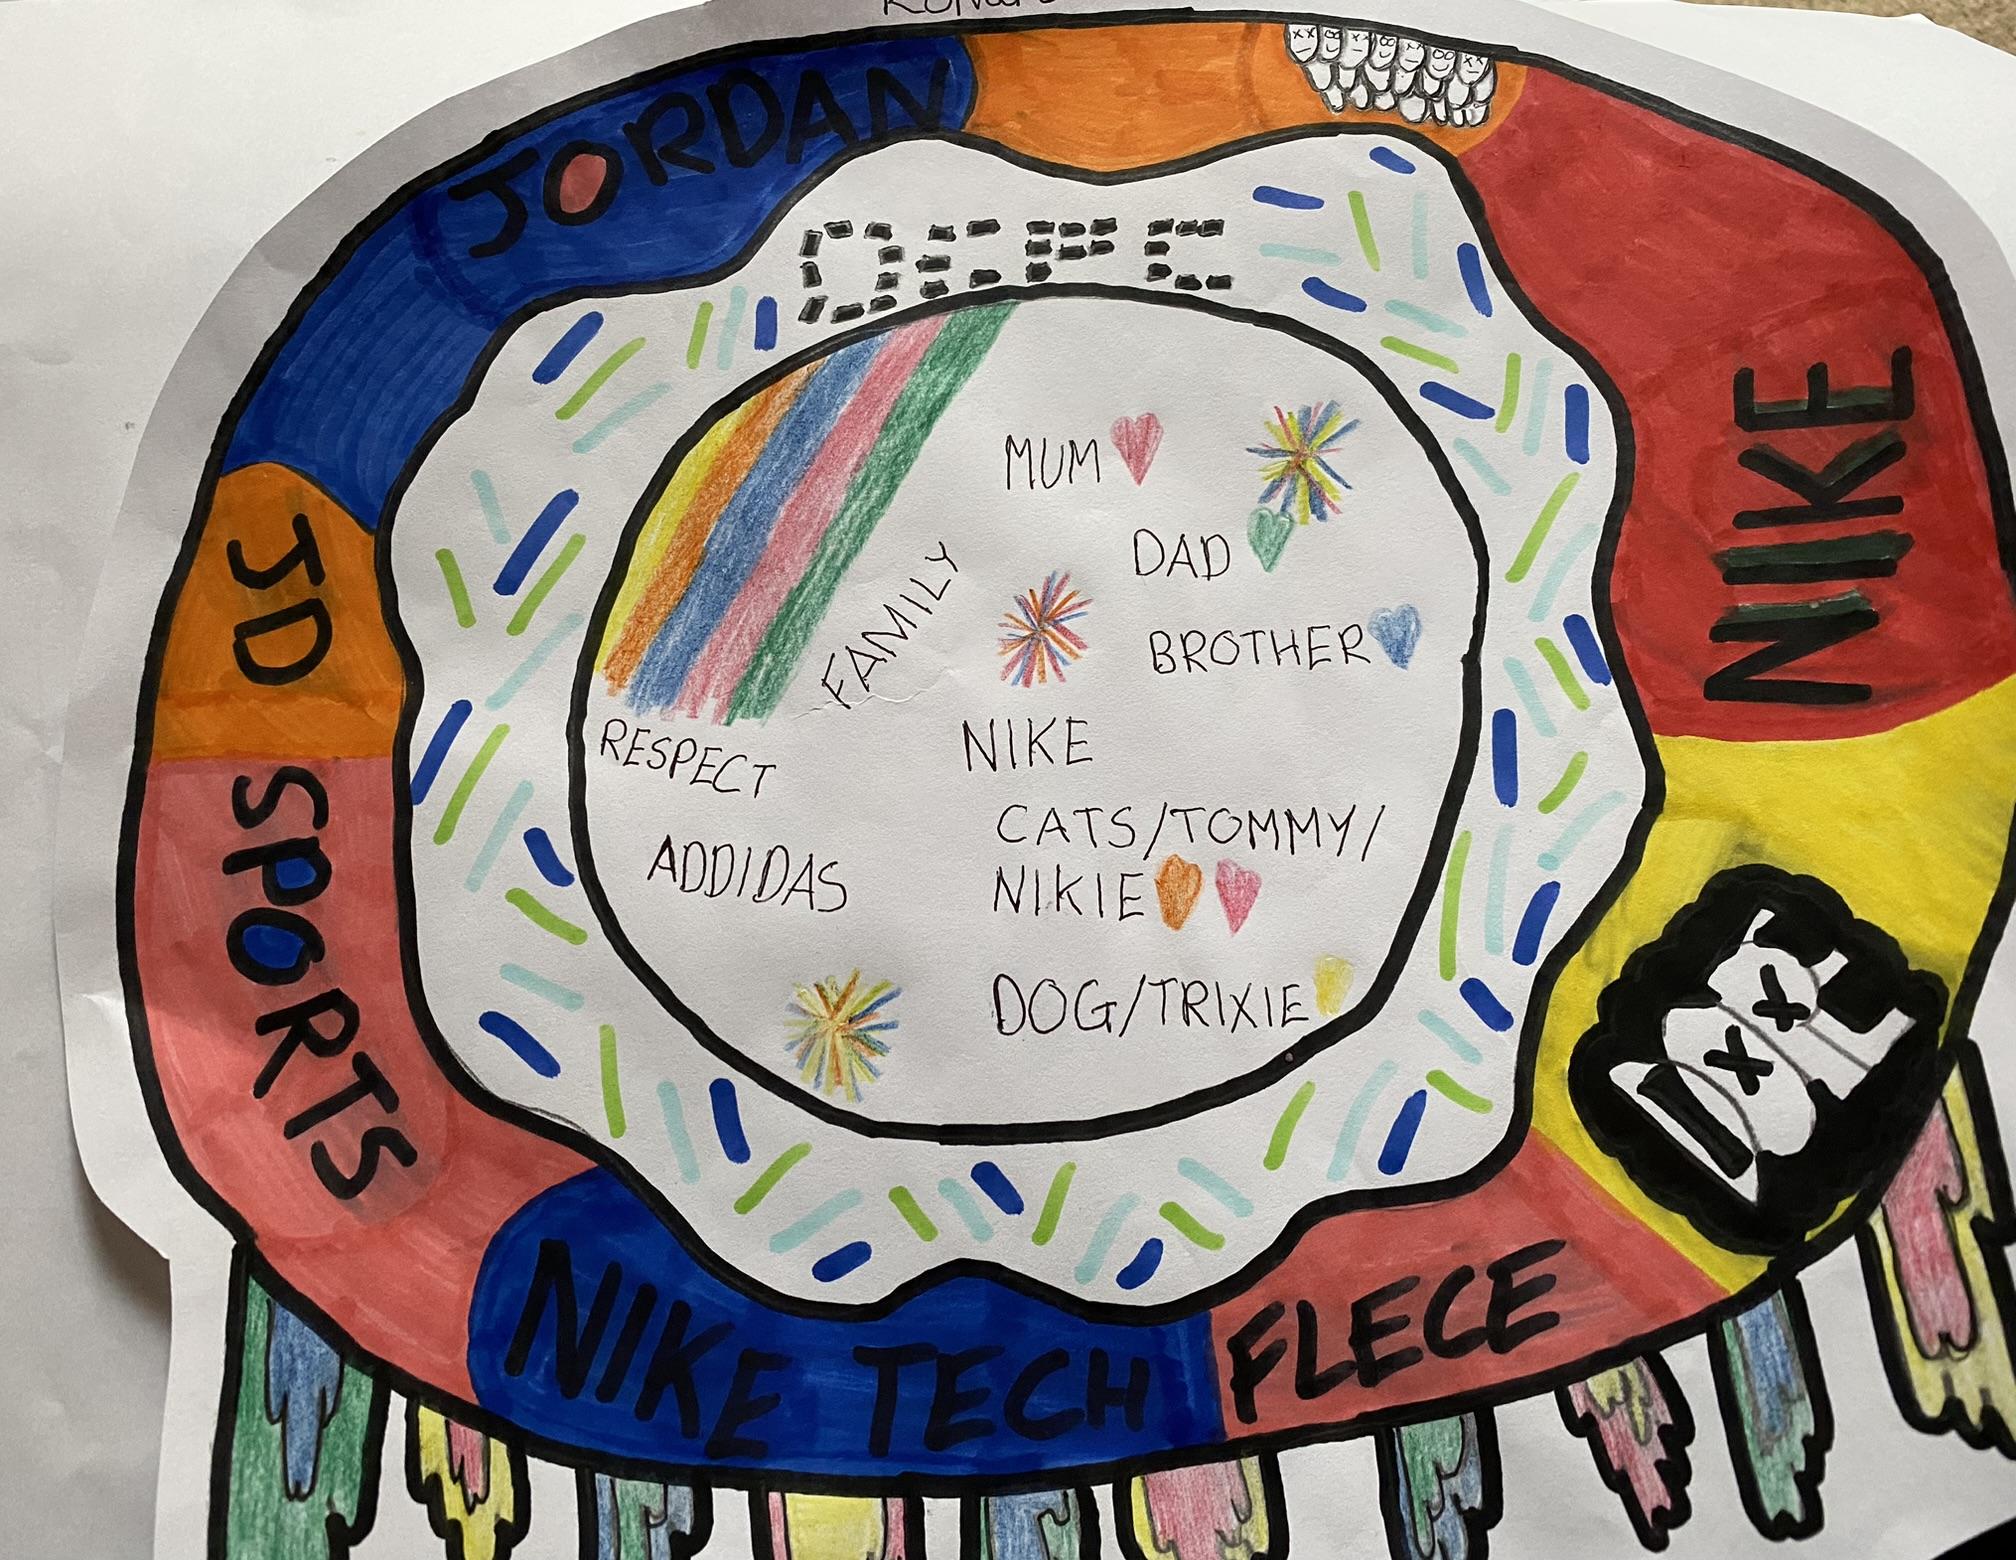 JORDAN
NIKE
MUM
DAD
FAMILY
BROTHER
JD
RESPECT
NIKE
SPORTS
CATS/TOMMY/
ADDIDAS
NIKIE
DOG/TRIXIE
NIKE TECH
FLECE